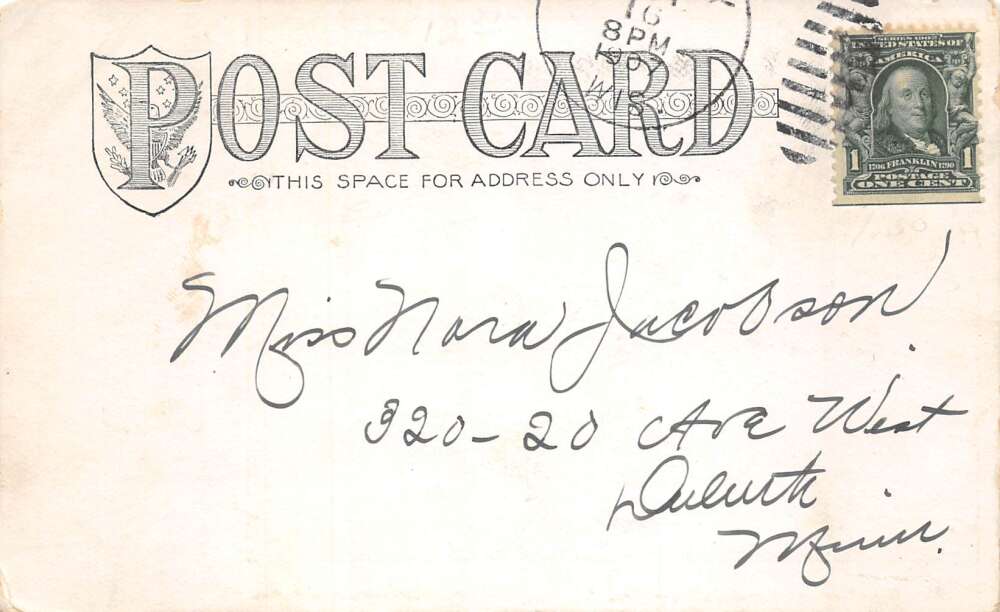 16
8 PM
1907
WIS.
POST CARD
THIS SPACE FOR ADDRESS ONLY
SERIES 1902
UNITED STATES OF
AMERICA
1 1706 FRANKLIN 1790 1
POSTAGE
ONE CENT
Miss Nora Jacobson
320-20 Ave West
Duluth
Minn.